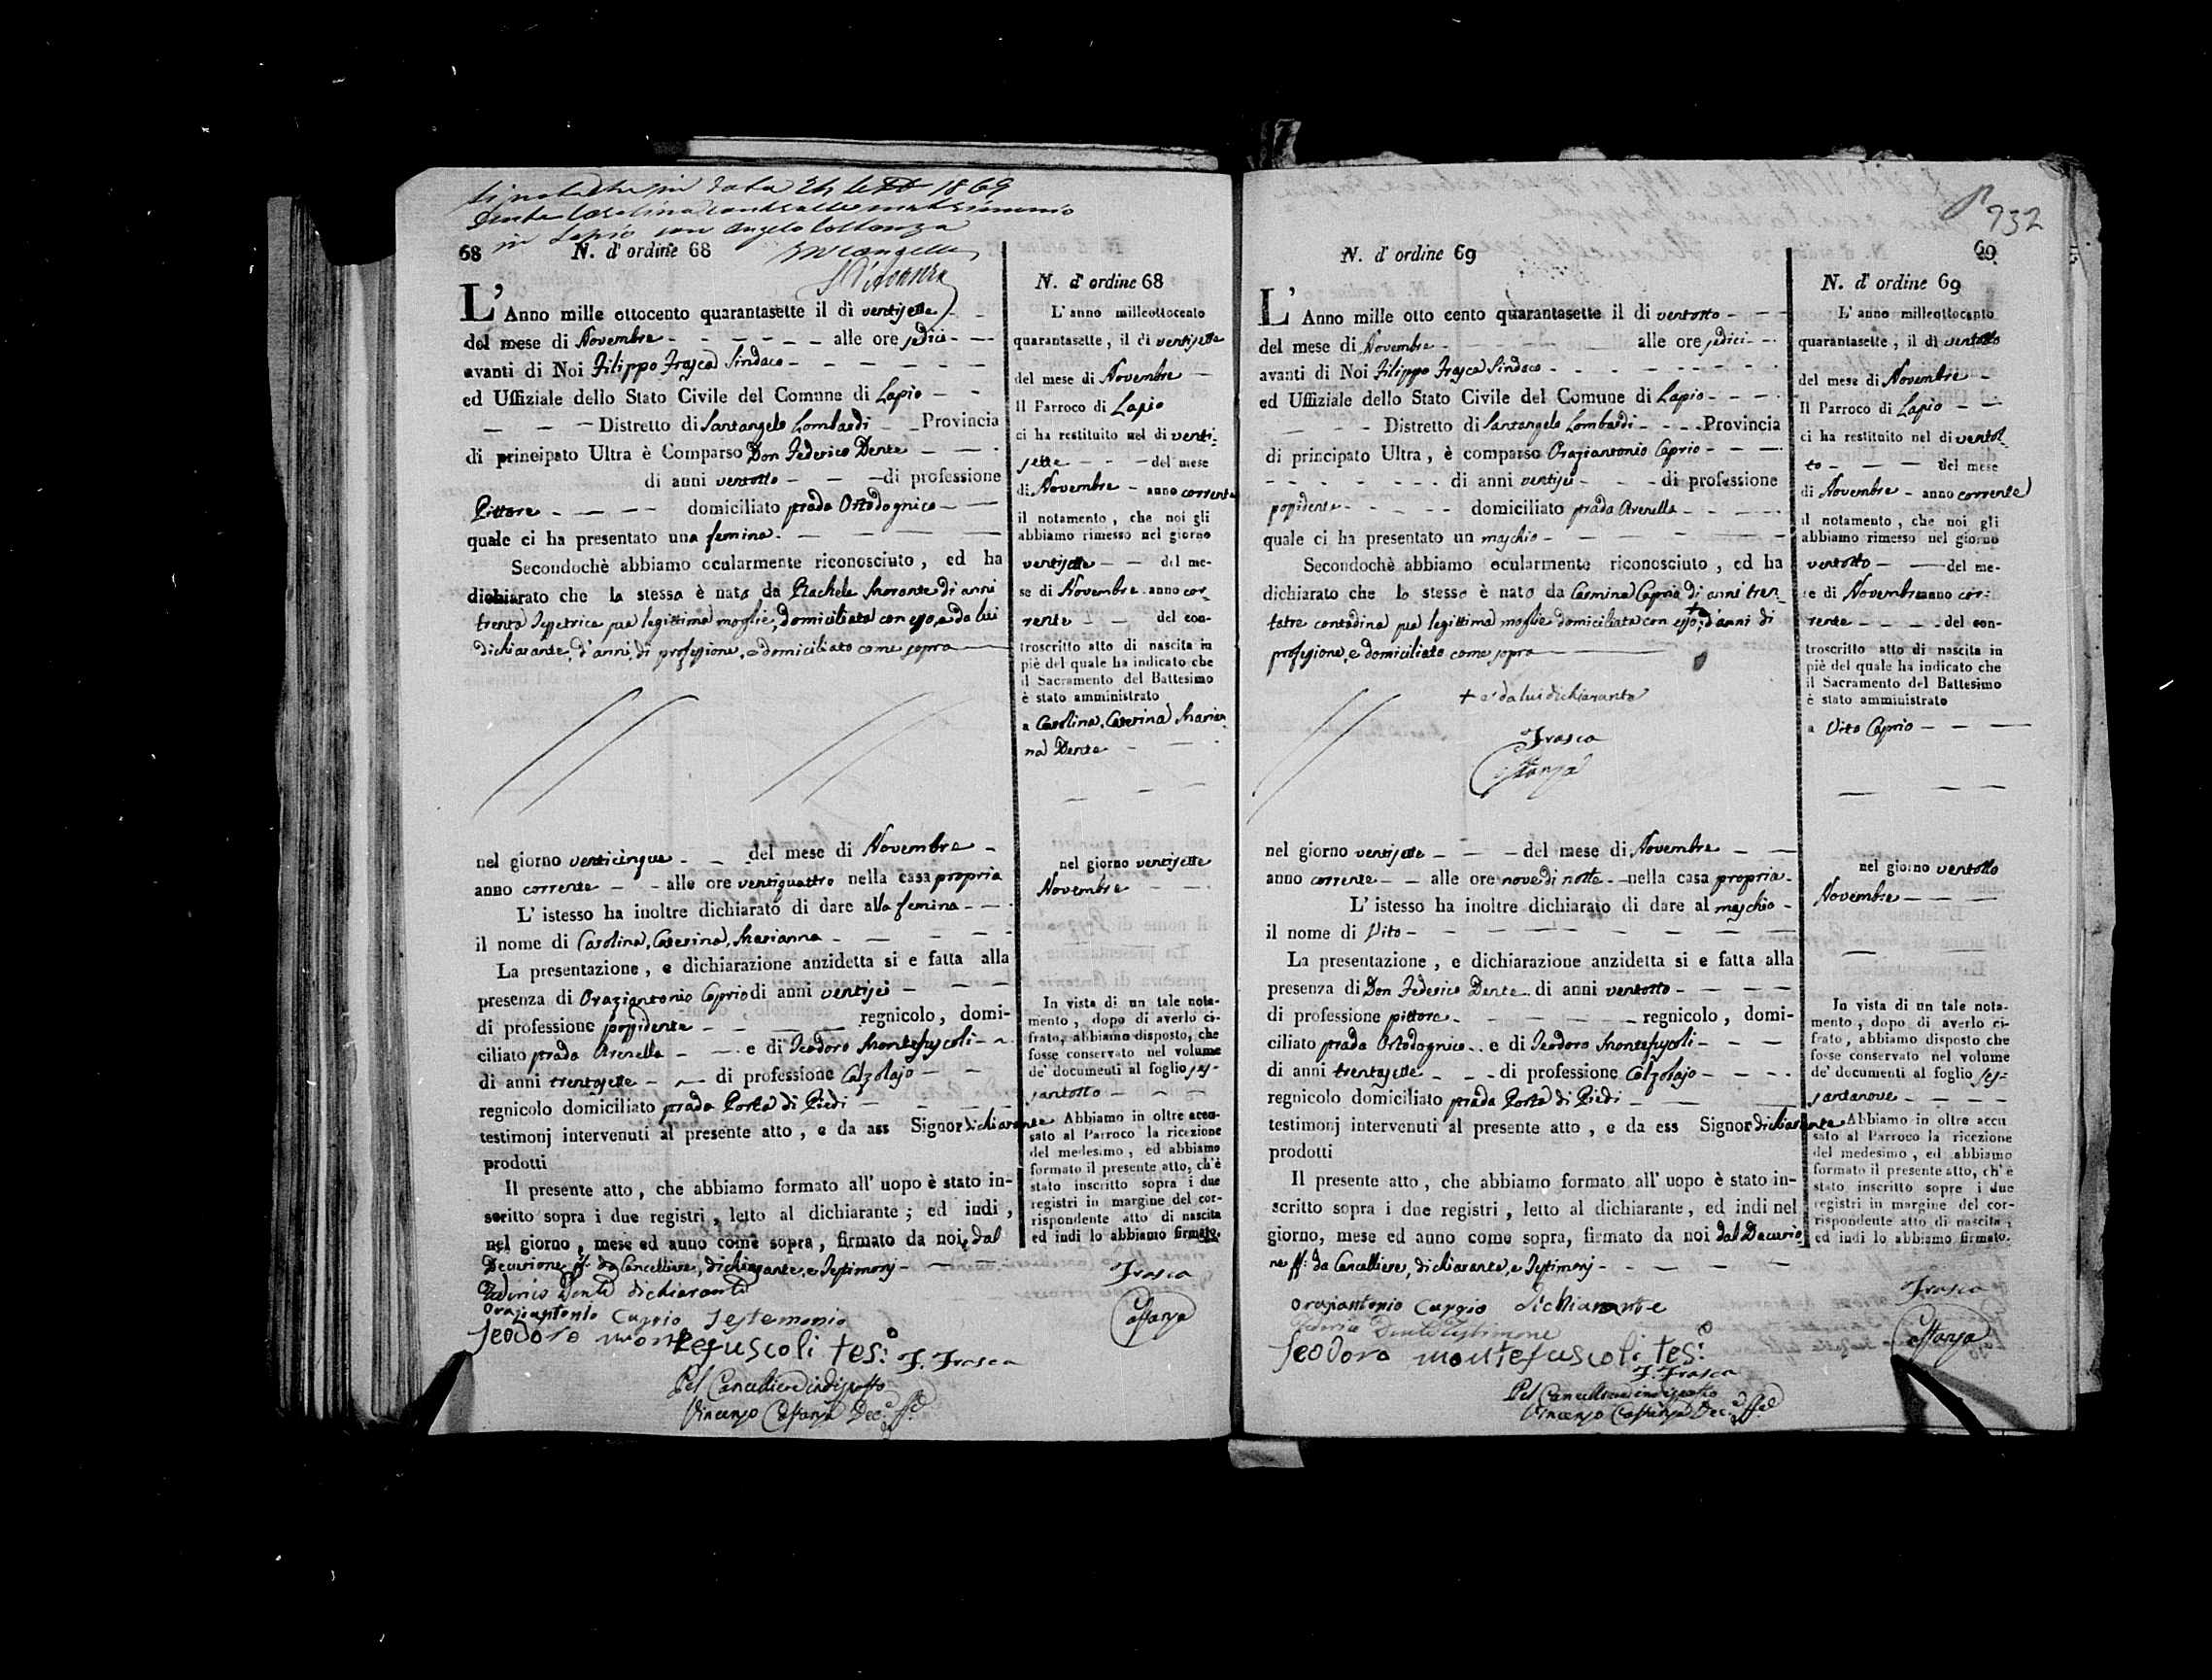 in data 24 1869
Dente Carolina matrimonio
in Lapio con Angelo
68 N. d' ordine 68
L' Anno mille ottocento quarantasette il dì ventisette
del mese di Novembre alle ore sedici
avanti di Noi Filippo Frasca Sindaco
ed Uffiziale dello Stato Civile del Comune di Lapio
Distretto di Santangelo Lombardi Provincia
di principato Ultra è Comparso Don Federico Dente
di anni ventotto di professione
Pittore domiciliato strada Ortodognico
quale ci ha presentato una femina
Secondochè abbiamo ocularmente riconosciuto, ed ha
dichiarato che la stessa è nata da Rachele Morante di anni
trenta sua legittima moglie, domiciliata con esso, e da lui
dichiarante, d'anni, di professione, e domiciliato come sopra
nel giorno venticinque del mese di Novembre
anno corrente alle ore ventiquattro nella casa propria
L' istesso ha inoltre dichiarato di dare alla femina
il nome di Carolina, Caterina, Marianna
La presentazione, e dichiarazione anzidetta si e fatta alla
presenza di Oraziantonio Caprio di anni ventisei
di professione possidente regnicolo, domi-
ciliato strada Arenella e di Teodoro Montefuscoli
di anni trentasette di professione Calzolajo
regnicolo domiciliato strada Porta di Piedi
testimonj intervenuti al presente atto, e da ass Signor dichiarante
prodotti
Il presente atto, che abbiamo formato all' uopo è stato in-
scritto sopra i due registri, letto al dichiarante; ed indi,
nel giorno, mese ed anno come sopra, firmato da noi, dal
Decurione ff. da Cancelliere, dichiarante, e Testimonj
Federico Dente dichiarante
Oraziantonio Caprio Testemonio
Teodoro montefuscoli tes:o
F. Frasca
Pel Cancelliere indisposto
Vincenzo Costanza Dec.e ff.
N. d' ordine 68
L' anno milleottocento
quarantasette, il di ventisette
del mese di Novembre
Il Parroco di Lapio
ci ha restituito nel di venti-
sette del mese
di Novembre anno corrente
il notamento, che noi gli
abbiamo rimesso nel giorno
ventisette del me-
se di Novembre anno cor-
rente del con-
troscritto atto di nascita in
piè del quale ha indicato che
il Sacramento del Battesimo
è stato amministrato
a Carolina, Caterina, Marian-
na Dente
nel giorno ventisette
Novembre
In vista di un tale nota-
mento, dopo di averlo ci-
frato, abbiamo disposto, che
fosse conservato nel volume
de' documenti al foglio ses-
santotto
Abbiamo in oltre accu-
sato al Parroco la ricezione
del medesimo, ed abbiamo
formato il presente atto, ch'è
stato inscritto sopra i due
registri in margine del cor-
rispondente atto di nascita
ed indi lo abbiamo firmato.
Frasca
Costanza
932
N. d' ordine 69 69
L' Anno mille otto cento quarantasette il di ventotto
del mese di Novembre alle ore sedici
avanti di Noi Filippo Frasca Sindaco
ed Uffiziale dello Stato Civile del Comune di Lapio
Distretto di Santangelo Lombardi Provincia
di principato Ultra, è comparso Oraziantonio Caprio
di anni ventisei di professione
possidente domiciliato strada Arenella
quale ci ha presentato un maschio
Secondochè abbiamo ocularmente riconosciuto, ed ha
dichiarato che lo stesso è nato da Carmina Caprio di anni tren-
tatre contadina sua legittima moglie domiciliata con esso, + d'anni di
professione, e domiciliato come sopra
+ e da lui dichiarante
Frasca
Costanza
nel giorno ventisette del mese di Novembre
anno corrente alle ore nove di notte nella casa propria
L' istesso ha inoltre dichiarato di dare al maschio
il nome di Vito
La presentazione, e dichiarazione anzidetta si e fatta alla
presenza di Don Federico Dente di anni ventotto
di professione pittore regnicolo, domi-
ciliato strada Ortodognico e di Teodoro Montefuscoli
di anni trentasette di professione Calzolajo
regnicolo domiciliato strada Porta di Piedi
testimonj intervenuti al presente atto, e da ess Signor dichiarante
prodotti
Il presente atto, che abbiamo formato all' uopo è stato in-
scritto sopra i due registri, letto al dichiarante, ed indi nel
giorno, mese ed anno come sopra, firmato da noi dal Decurio-
ne ff: da Cancelliere, dichiarante, e Testimonj
Oraziantonio Caprio dichiarante
Federico Dente Testimone
Teodoro montefuscoli tes:o
F. Frasca
Pel Cancelliere indisposto
Vincenzo Costanza Dec.e ff.
N. d' ordine 69
L' anno milleottocento
quarantasette, il dì ventotto
del mese di Novembre
Il Parroco di Lapio
ci ha restituito nel di ventot-
to del mese
di Novembre anno corrente
il notamento, che noi gli
abbiamo rimesso nel giorno
ventotto del me-
se di Novembre anno cor-
rente del con-
troscritto atto di nascita in
piè del quale ha indicato che
il Sacramento del Battesimo
è stato amministrato
a Vito Caprio
nel giorno ventotto
Novembre
In vista di un tale nota-
mento, dopo di averlo ci-
frato, abbiamo disposto che
fosse conservato nel volume
de' documenti al foglio ses-
santanove
Abbiamo in oltre accu
sato al Parroco la ricezione
del medesimo, ed abbiamo
formato il presente atto, ch'è
stato inscritto sopre i due
registri in margine del cor-
rispondente atto di nascita,
ed indi lo abbiamo firmato.
Frasca
Costanza